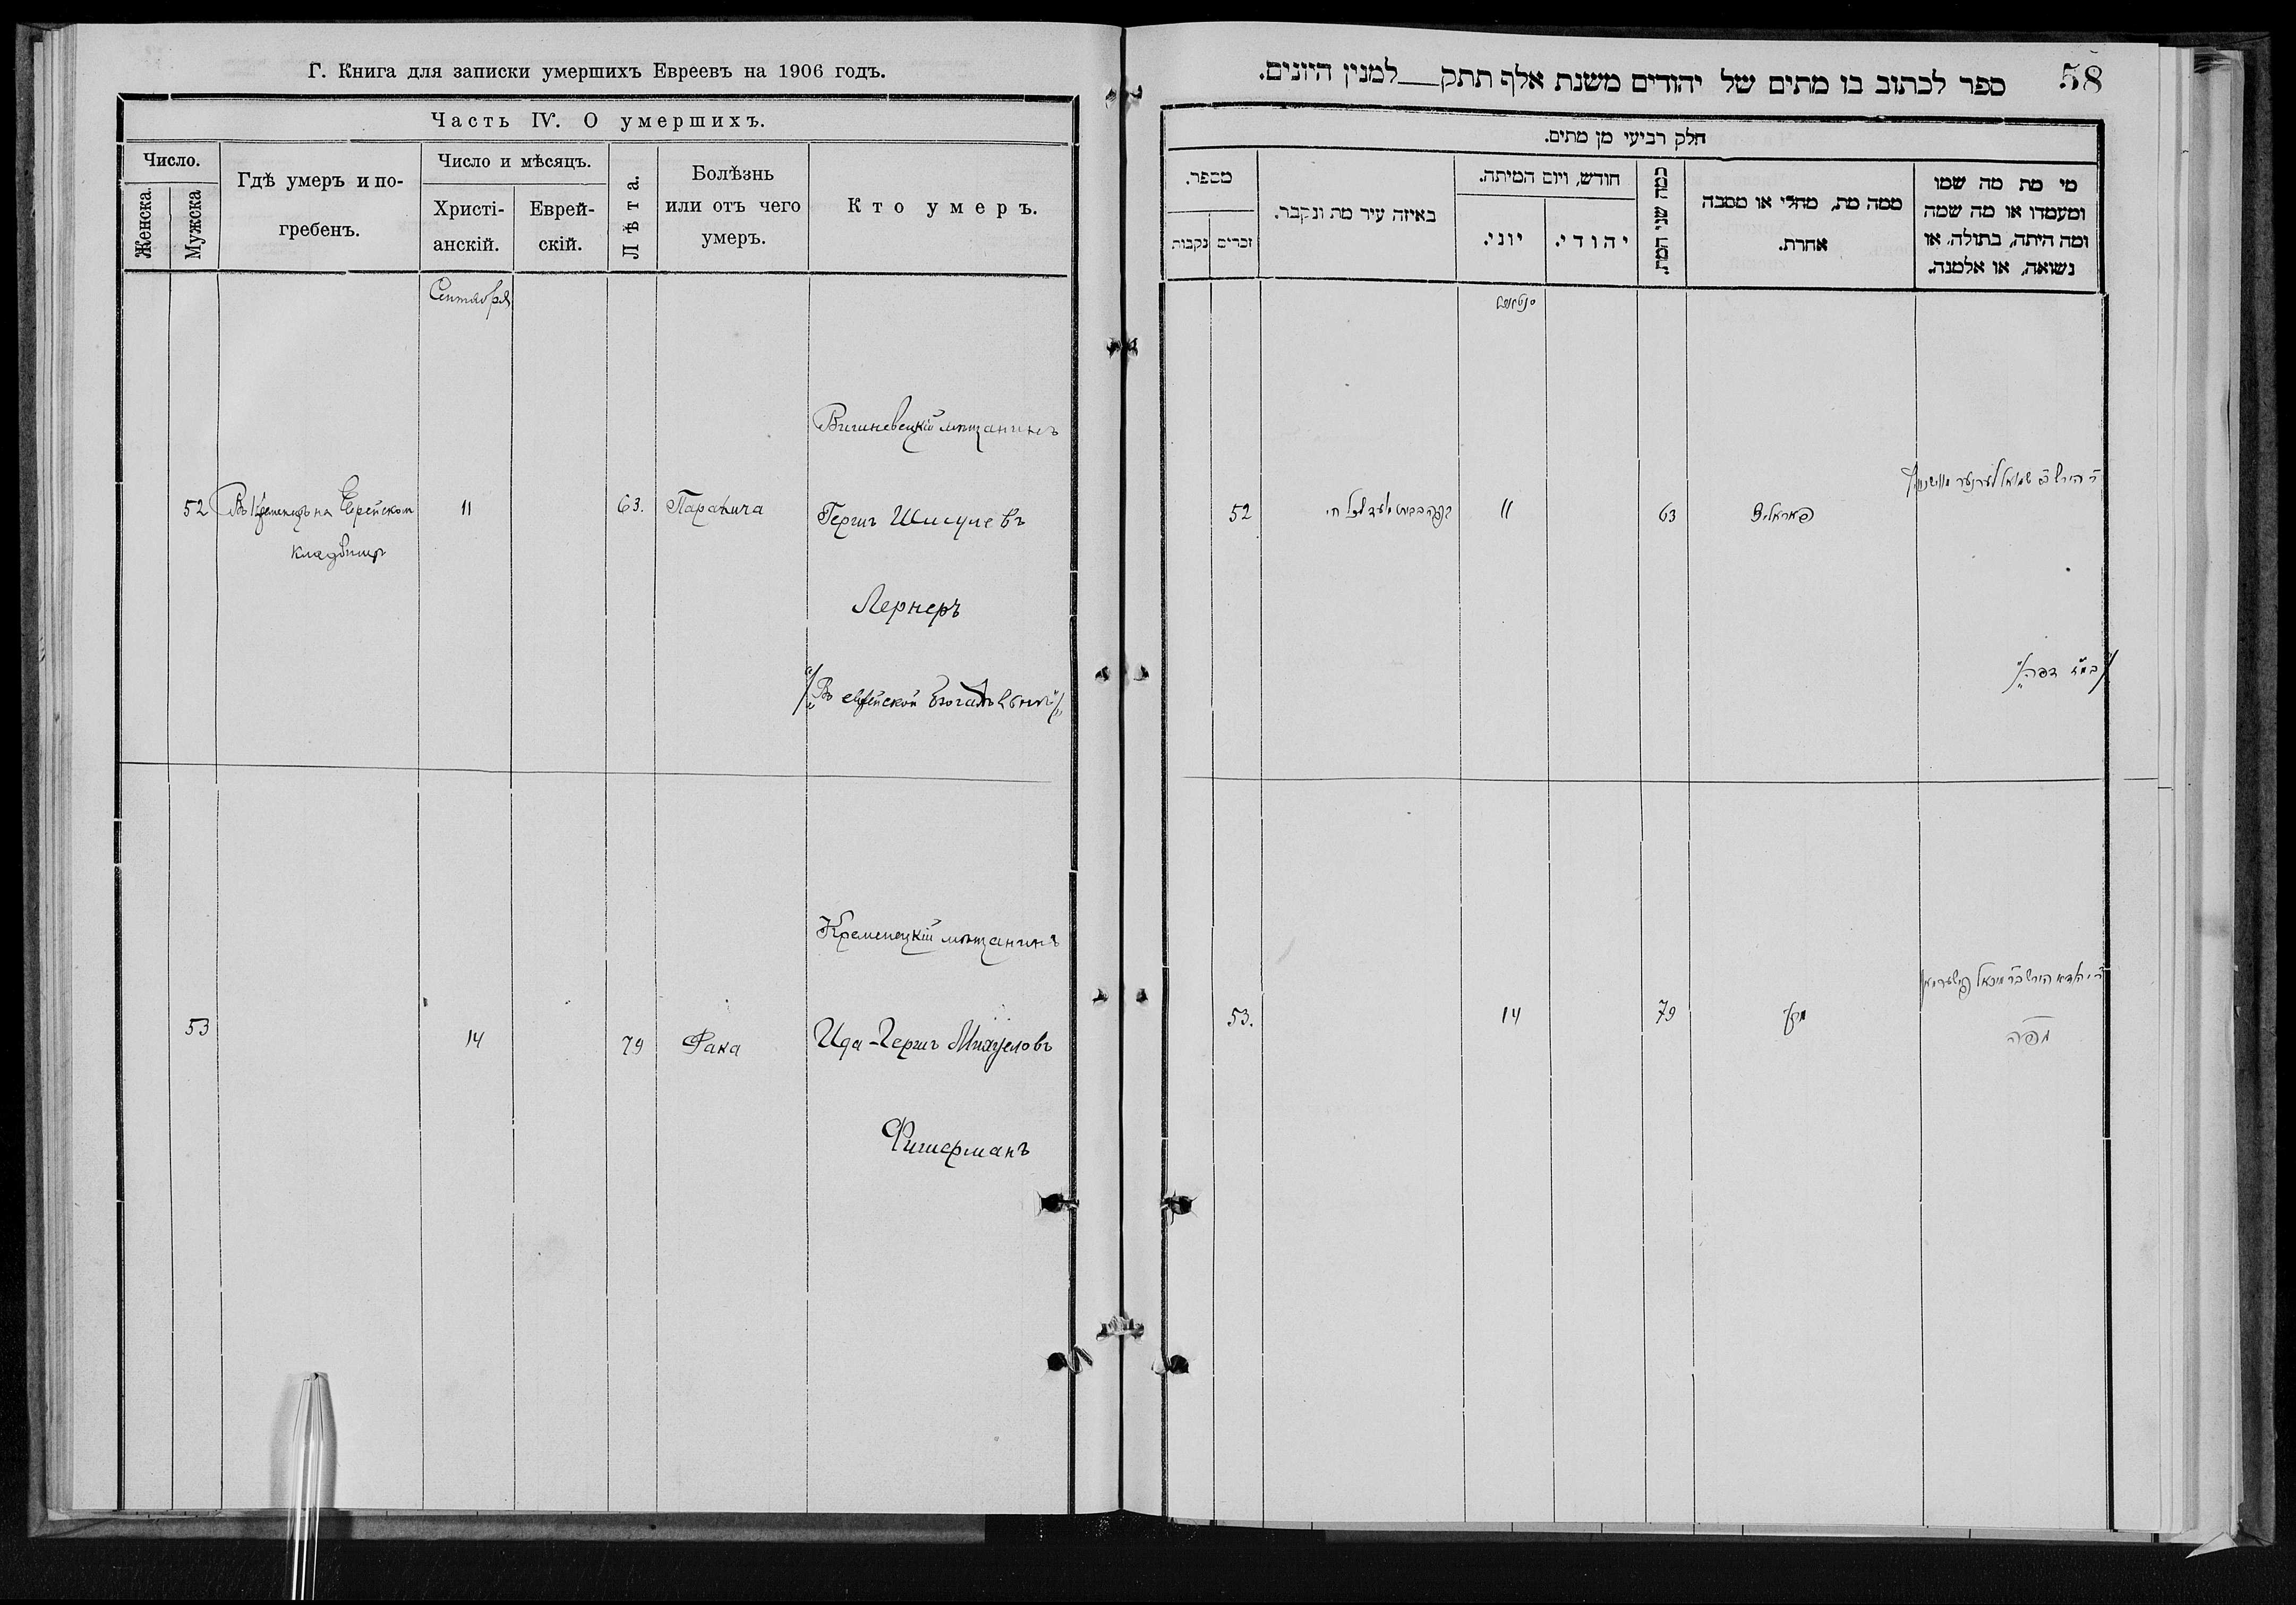 Г. Книга для записки умершихъ Евреевъ на 1906 годъ.
Часть IV. О умершихъ.
Число.
Женска.
Мужска
Гдѣ умеръ и по-
гребенъ.
Число и мѣсяцъ.
Христі-
анскій.
Еврей-
скій.
Лѣта.
Болѣзнь
или отъ чего
умеръ.
Кто умеръ.
Сентября
Вишневецкій мѣщанинъ
52 Въ Кременцѣ на Еврейском 11 63. Паралича Гершъ
кладбищѣ
Лернеръ
"/Въ еврейской богадѣльнѣ/"
Кременецкій мѣщанинъ
53 14 79 Рака Ида-Гершъ
Фишерманъ
58
ספר לכתוב בו מתים של יהודים משנת אלף תתק למנין היונים.
חלק רביעי מן מתים.
מי מת מה שמו
ומעמדו או מה שמה
ומה היתה, בתולה, או
נשואה, או אלמנה.
ממה מת, מחלי או מסבה
אחרת.
כמה שני המת.
חודש, ויום המיתה.
יהודי.
יוני.
באיזה עיר מת ונקבר.
מספר.
זכרים
נקבות
ר' הירש ב"ר שמואל לערנער
52 11 63 פאראליז
53. 14 79